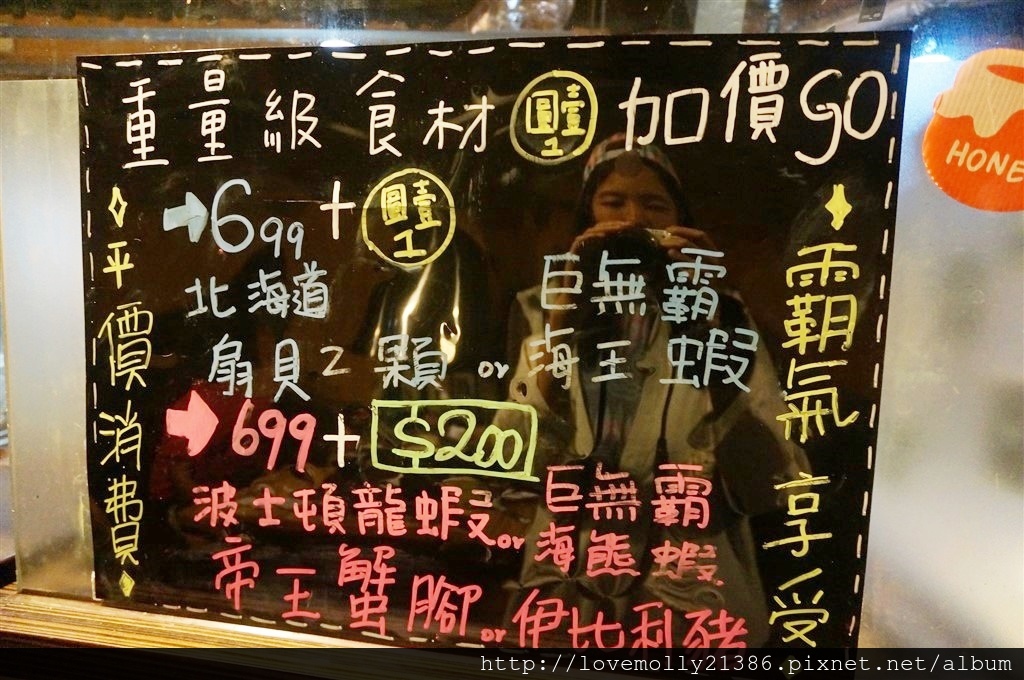 重量級食材 壹圓 加價go
1
→699+ 壹圓
1
北海道
扇貝2顆 or
巨無霸
海王蝦
→699+ $200
波士頓龍蝦 or
巨無霸
海熊蝦
帝王蟹腳 or 伊比利豬
平價消費
霸氣享受
HONE
http://lovemolly21386.pixnet.net/album